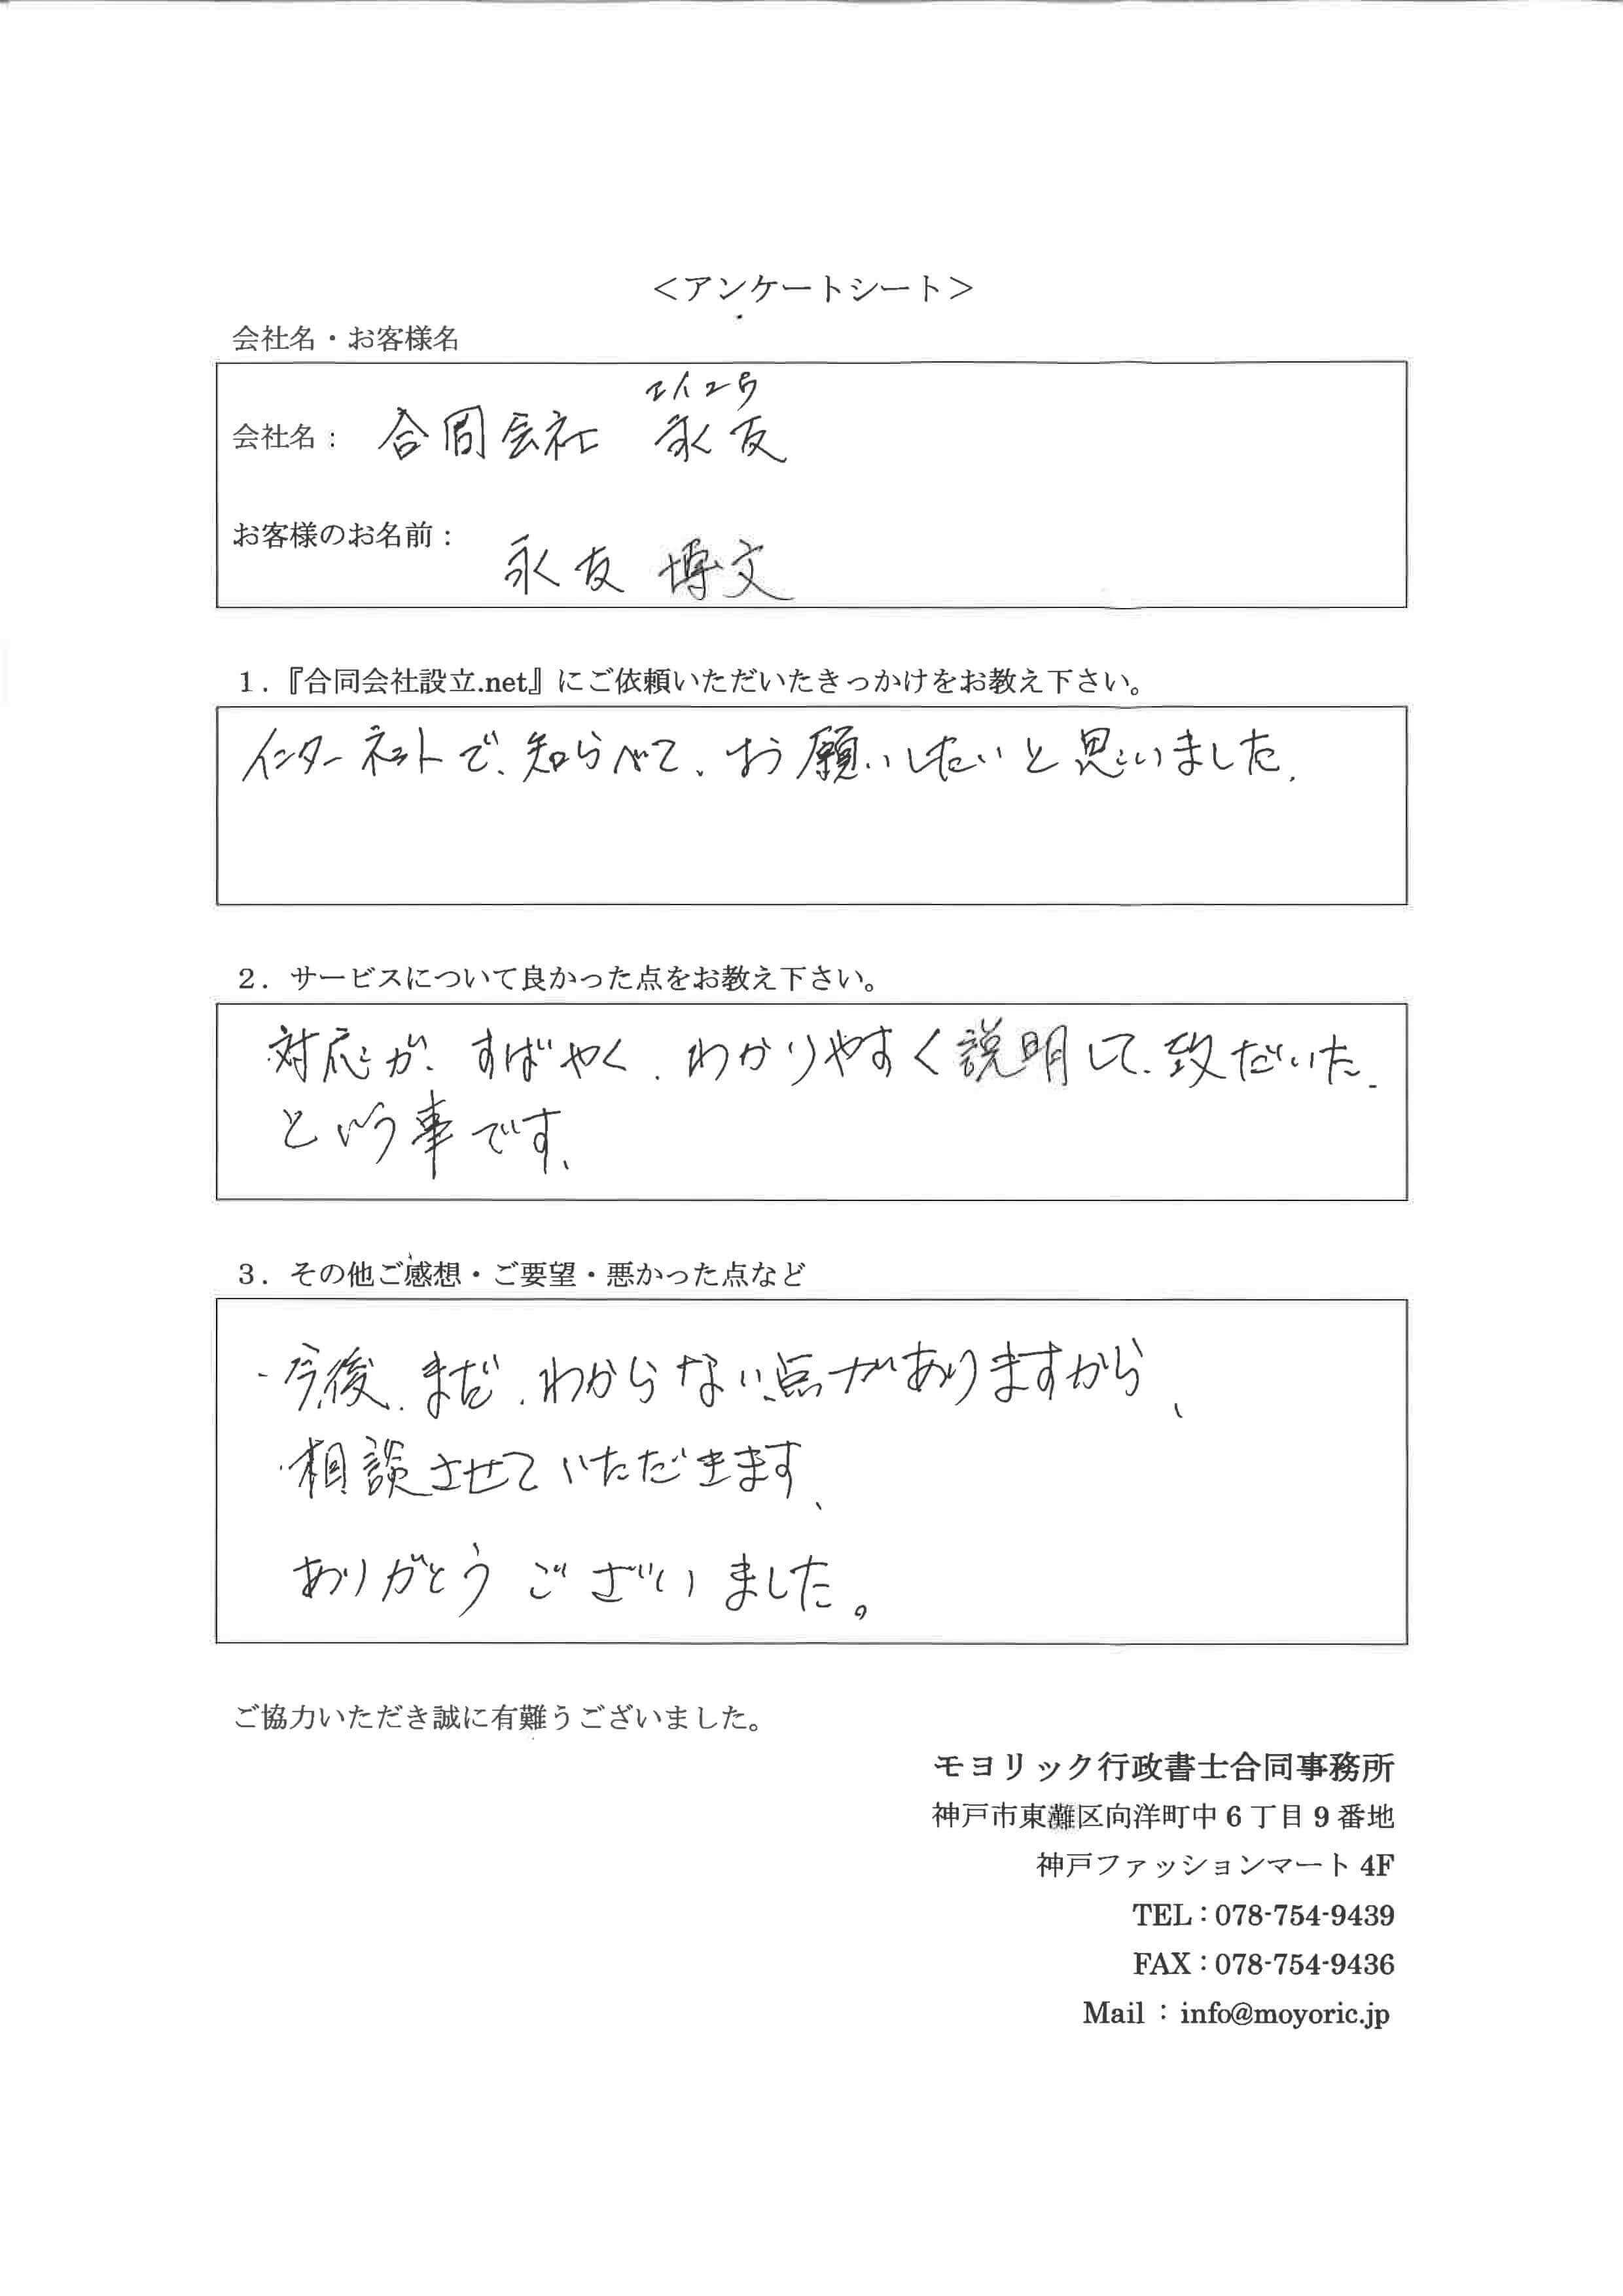 ＜アンケートシート＞
会社名・お客様名
エイユウ
会社名： 合同会社 永友
お客様のお名前： 永友 博文
1.『合同会社設立.net』にご依頼いただいたきっかけをお教え下さい。
インターネットで、知らべて、お願いしたいと思いました.
2. サービスについて良かった点をお教え下さい。
対応が、すばやく、わかりやすく説明して、致だいた.
という事です、
3. その他ご感想・ご要望・悪かった点など
・今後、まだ、わからない点がありますから、
・相談させていただきます、
ありがとうございました。
ご協力いただき誠に有難うございました。
モヨリック行政書士合同事務所
神戸市東灘区向洋町中 6 丁目 9 番地
神戸ファッションマート 4F
TEL：078-754-9439
FAX：078-754-9436
Mail ：info@moyoric.jp